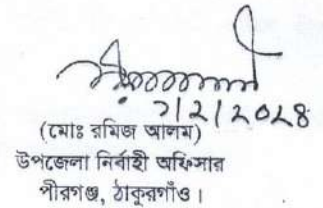 ৭/2/2০2৪
(মোঃ রমিজ আলম)
উপজেলা নির্বাহী অফিসার
পীরগঞ্জ, ঠাকুরগাঁও।